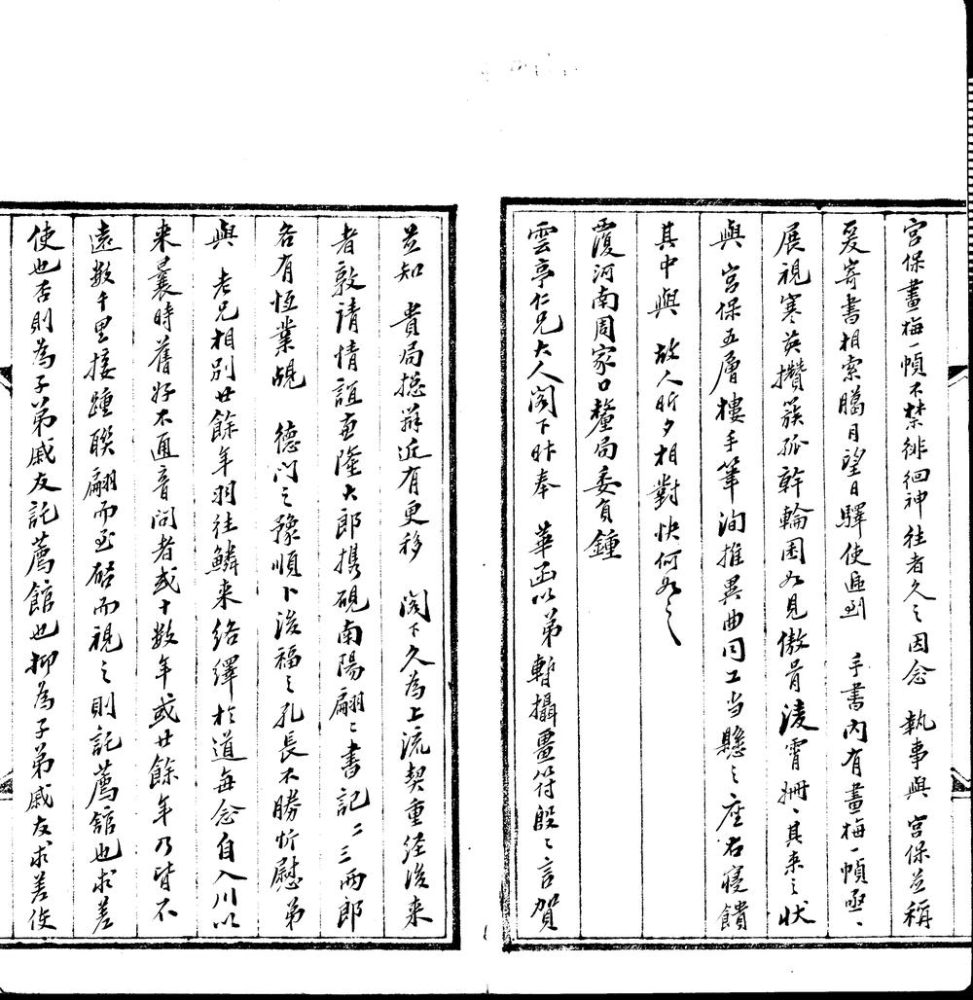 宮保畫梅一幀不禁徘徊神往者久之因念 執事與 宮保並稱
爰寄書相索臈月望日驛使遞到 手書內有畫梅一幀亟〻
展視寒英攢簇孤幹輪囷如見傲骨凌霄姍〻其来之狀
與 宮保五層樓手筆洵推異曲同工当懸之座右寢饋
其中與 故人昕夕相對快何如之
覆河南周家口釐局委員鍾
雲亭仁兄大人閣下昨奉 華函以弟暫攝畺符殷〻言賀
並知 貴局總辦近有更移 閣下久為上流契重經後来
者敦請情誼亟隆大郎携硯南陽翩〻書記二三兩郎
各有恆業覘 德门之豫順卜後福之孔長不勝忻慰弟
與 老兄相别廿餘年羽往鱗来络繹於道每念自入川以
来曩時舊好不通音问者或十數年或廿餘年乃皆不
遠數千里接踵聯翩而至啓而視之則託薦舘也求差
使也否則為子弟戚友託薦館也抑為子弟戚友求差使